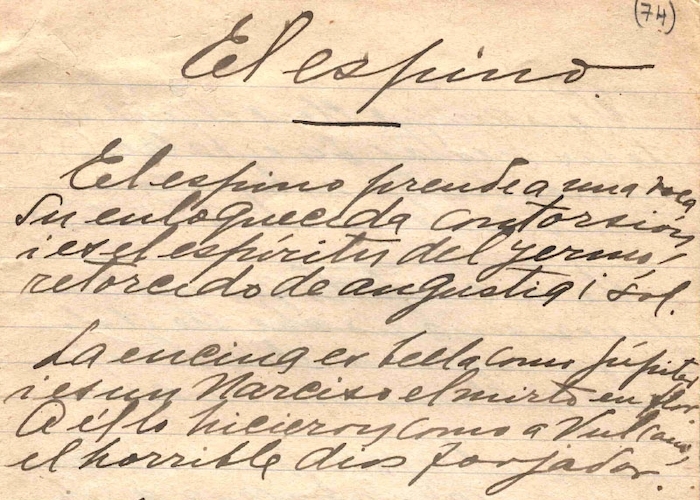 (74)
El espino
El espino prende a una roca
su enloquecida contorsión,
i es el espíritu del yermo,
retorcido de angustia i sol.
La encina es bella como Júpiter
i es un Narciso el mirto en flor.
A él lo hicieron como a Vulcano,
el horrible dios forjador.